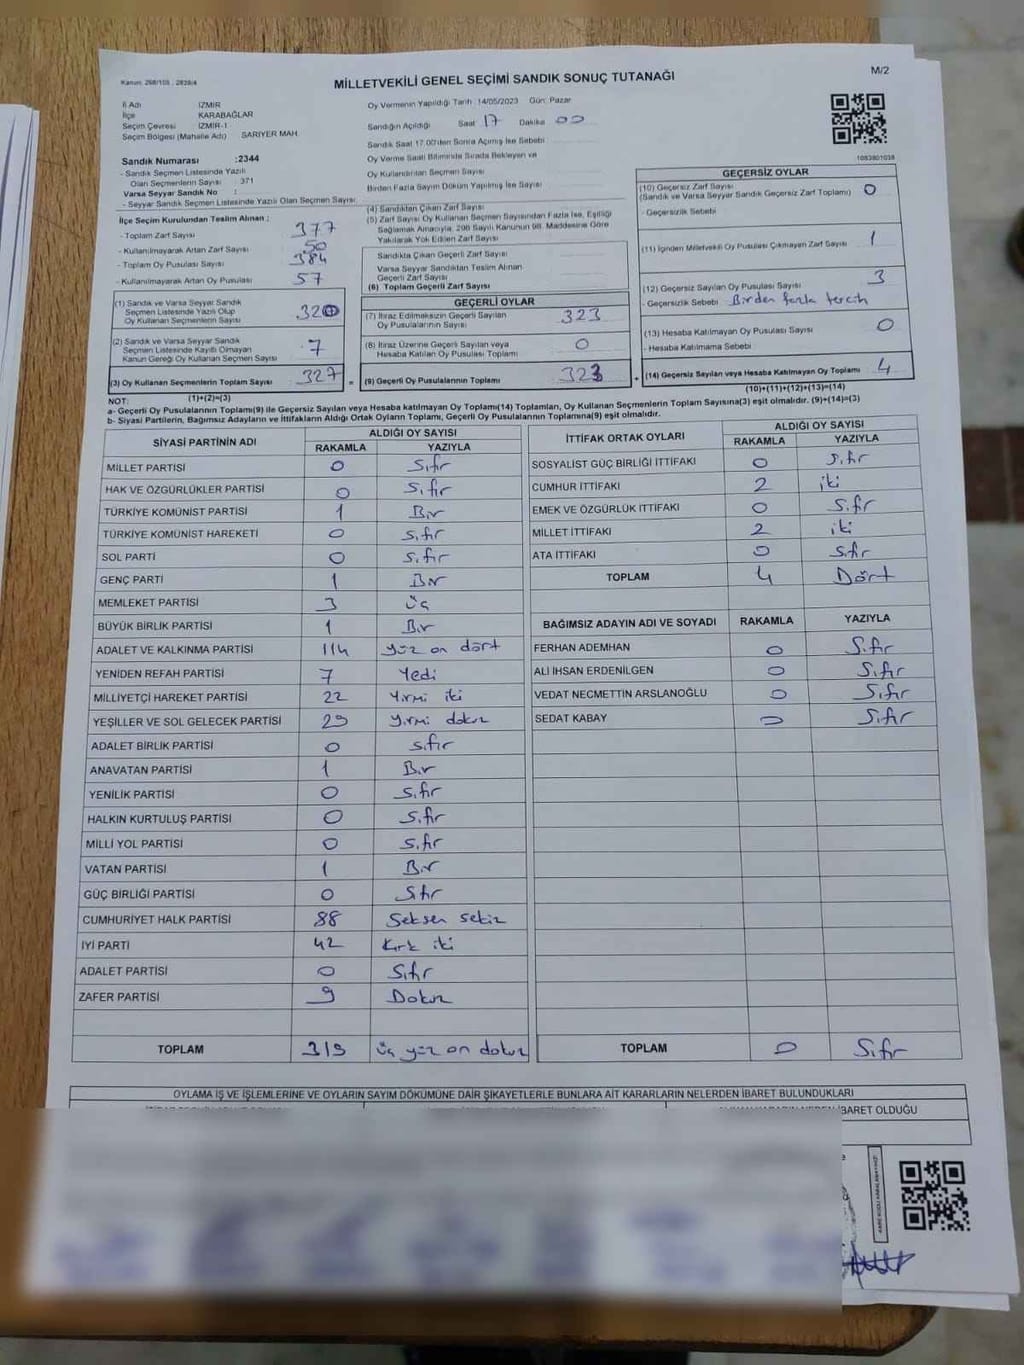 Kanun: 298/105 ; 2839/4
MİLLETVEKİLİ GENEL SEÇİMİ SANDIK SONUÇ TUTANAĞI
M/2
İl Adı İZMİR
İlçe KARABAĞLAR
Seçim Çevresi İZMİR-1
Seçim Bölgesi (Mahalle Adı) SARIYER MAH.
Oy Vermenin Yapıldığı Tarih : 14/05/2023 Gün: Pazar
Sandığın Açıldığı Saat 17 Dakika 00
Sandık Saat 17.00'den Sonra Açılmış İse Sebebi
Oy Verme Saati Bitiminde Sırada Bekleyen ve
Oy Kullandırılan Seçmen Sayısı
Birden Fazla Sayım Döküm Yapılmış İse Sayısı
Sandık Numarası :2344
- Sandık Seçmen Listesinde Yazılı
Olan Seçmenlerin Sayısı : 371
Varsa Seyyar Sandık No :
- Seyyar Sandık Seçmen Listesinde Yazılı Olan Seçmen Sayısı
İlçe Seçim Kurulundan Teslim Alınan ;
- Toplam Zarf Sayısı 377
- Kullanılmayarak Artan Zarf Sayısı 50
- Toplam Oy Pusulası Sayısı 384
- Kullanılmayarak Artan Oy Pusulası 57
(1) Sandık ve Varsa Seyyar Sandık
Seçmen Listesinde Yazılı Olup
Oy Kullanan Seçmenlerin Sayısı 320
(2) Sandık ve Varsa Seyyar Sandık
Seçmen Listesinde Kayıtlı Olmayan
Kanun Gereği Oy Kullanan Seçmen Sayısı 7
(3) Oy Kullanan Seçmenlerin Toplam Sayısı 327
(1)+(2)=(3)
(4) Sandıktan Çıkan Zarf Sayısı
(5) Zarf Sayısı Oy Kullanan Seçmen Sayısından Fazla İse, Eşitliği
Sağlamak Amacıyla, 298 Sayılı Kanunun 98. Maddesine Göre
Yakılarak Yok Edilen Zarf Sayısı
Sandıkta Çıkan Geçerli Zarf Sayısı
Varsa Seyyar Sandıktan Teslim Alınan
Geçerli Zarf Sayısı
(6) Toplam Geçerli Zarf Sayısı
GEÇERLİ OYLAR
(7) İtiraz Edilmeksizin Geçerli Sayılan
Oy Pusulalarının Sayısı 323
(8) İtiraz Üzerine Geçerli Sayılan veya
Hesaba Katılan Oy Pusulası Toplamı 0
= (9) Geçerli Oy Pusulalarının Toplamı 323
1083801038
GEÇERSİZ OYLAR
(10) Geçersiz Zarf Sayısı
(Sandık ve Varsa Seyyar Sandık Geçersiz Zarf Toplamı) 0
- Geçersizlik Sebebi
(11) İçinden Milletvekili Oy Pusulası Çıkmayan Zarf Sayısı 1
(12) Geçersiz Sayılan Oy Pusulası Sayısı 3
- Geçersizlik Sebebi Birden fazla tercih
(13) Hesaba Katılmayan Oy Pusulası Sayısı 0
- Hesaba Katılmama Sebebi
+ (14) Geçersiz Sayılan veya Hesaba Katılmayan Oy Toplamı 4
(10)+(11)+(12)+(13)=(14)
NOT:
a- Geçerli Oy Pusulalarının Toplamı(9) ile Geçersiz Sayılan veya Hesaba katılmayan Oy Toplamı(14) Toplamları, Oy Kullanan Seçmenlerin Toplam Sayısına(3) eşit olmalıdır. (9)+(14)=(3)
b- Siyasi Partilerin, Bağımsız Adayların ve İttifakların Aldığı Ortak Oyların Toplamı, Geçerli Oy Pusulalarının Toplamına(9) eşit olmalıdır.
SİYASİ PARTİNİN ADI ALDIĞI OY SAYISI
RAKAMLA YAZIYLA
MİLLET PARTİSİ 0 Sıfır
HAK VE ÖZGÜRLÜKLER PARTİSİ 0 Sıfır
TÜRKİYE KOMÜNİST PARTİSİ 1 Bir
TÜRKİYE KOMÜNİST HAREKETİ 0 Sıfır
SOL PARTİ 0 Sıfır
GENÇ PARTİ 1 Bir
MEMLEKET PARTİSİ 3 Üç
BÜYÜK BİRLİK PARTİSİ 1 Bir
ADALET VE KALKINMA PARTİSİ 114 yüz on dört
YENİDEN REFAH PARTİSİ 7 Yedi
MİLLİYETÇİ HAREKET PARTİSİ 22 Yirmi iki
YEŞİLLER VE SOL GELECEK PARTİSİ 29 Yirmi dokuz
ADALET BİRLİK PARTİSİ 0 sıfır
ANAVATAN PARTİSİ 1 Bir
YENİLİK PARTİSİ 0 Sıfır
HALKIN KURTULUŞ PARTİSİ 0 Sıfır
MİLLİ YOL PARTİSİ 0 Sıfır
VATAN PARTİSİ 1 Bir
GÜÇ BİRLİĞİ PARTİSİ 0 Sıfır
CUMHURİYET HALK PARTİSİ 88 Seksen sekiz
İYİ PARTİ 42 Kırk iki
ADALET PARTİSİ 0 Sıfır
ZAFER PARTİSİ 9 Dokuz
TOPLAM 319 üç yüz on dokuz
İTTİFAK ORTAK OYLARI ALDIĞI OY SAYISI
RAKAMLA YAZIYLA
SOSYALİST GÜÇ BİRLİĞİ İTTİFAKI 0 Sıfır
CUMHUR İTTİFAKI 2 iki
EMEK VE ÖZGÜRLÜK İTTİFAKI 0 Sıfır
MİLLET İTTİFAKI 2 iki
ATA İTTİFAKI 0 Sıfır
TOPLAM 4 Dört
BAĞIMSIZ ADAYIN ADI VE SOYADI RAKAMLA YAZIYLA
FERHAN ADEMHAN 0 Sıfır
ALİ İHSAN ERDENİLGEN 0 Sıfır
VEDAT NECMETTİN ARSLANOĞLU 0 Sıfır
SEDAT KABAY 0 Sıfır
TOPLAM 0 Sıfır
OYLAMA İŞ VE İŞLEMLERİNE VE OYLARIN SAYIM DÖKÜMÜNE DAİR ŞİKAYETLERLE BUNLARA AİT KARARLARIN NELERDEN İBARET BULUNDUKLARI
İBARET OLDUĞU